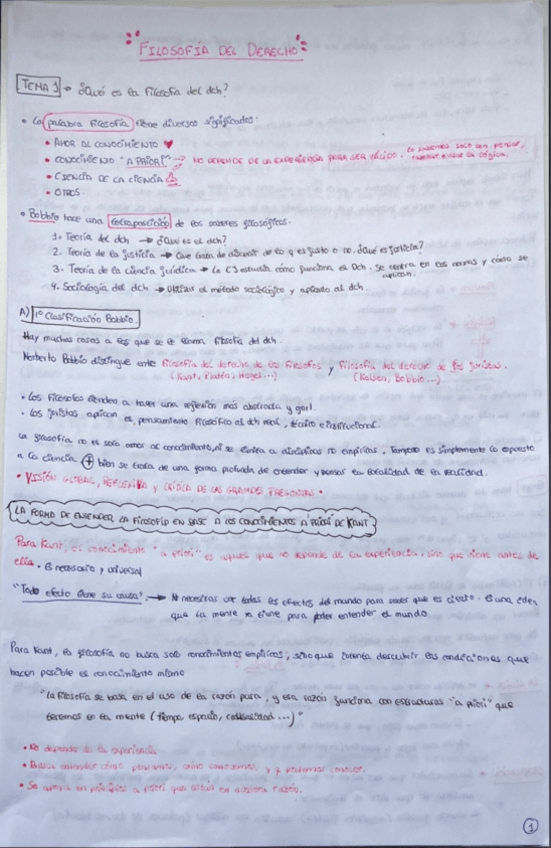 FILOSOFÍA DEL DERECHO
TEMA 1 ¿Qué es la filosofía del dch?
• La palabra filosofía tiene diversos significados:
• AMOR AL CONOCIMIENTO
• CONOCIMIENTO "A PRIORI" → NO DEPENDE DE LA EXPERIENCIA PARA SER VÁLIDO. Lo sabemos solo con pensar,
• CIENCIA DE LA CIENCIA
• OTROS
• Bobbio hace una de los saberes filosóficos.
1. Teoría del dch → ¿Qué es el dch?
2. Teoría de la justicia → Que trata de discernir de lo q es justo o no. ¿Qué es justicia?
3. Teoría de la ciencia jurídica → La CJ estudia cómo funciona el Dch. Se centra en las normas y cómo se aplican.
4. Sociología del dch → Utilizar el método sociológico y aplicarlo al dch.
A) 1º Clasificación Bobbio.
Hay muchas cosas a las que se le llama filosofía del dch.
Norberto Bobbio distingue entre filosofía del derecho de los filósofos y filosofía del derecho de los juristas.
(Kant, Platón, Hegel...) (Kelsen, Bobbio...)
• Los filósofos tienden a hacer una reflexión más abstracta y gnrl.
• Los juristas aplican el pensamiento filosófico al dch real, técnico e institucional.
La filosofía no es solo amor al conocimiento, ni se limita a disciplinas no empíricas. Tampoco es simplemente lo opuesto
a la ciencia, + bien se trata de una forma profunda de entender y pensar la totalidad de la realidad.
• VISIÓN GLOBAL, REFLEXIVA Y CRÍTICA DE LAS GRANDES PREGUNTAS •
LA FORMA DE ENTENDER LA FILOSOFÍA EN BASE A LOS CONOCIMIENTOS A PRIORI DE KANT
Para Kant, el conocimiento "a priori" es aquel que no depende de la experiencia, sino que viene antes de
ella. Es necesario y universal
"Todo efecto tiene su causa" → No necesitas ver todos los efectos del mundo para saber que es cierto. Es una idea
que la mente ya tiene para poder entender el mundo
Para Kant, la filosofía no busca solo conocimientos empíricos, sino que intenta descubrir las condiciones que
hacen posible el conocimiento mismo
"La filosofía se basa en el uso de la razón pura, y esa razón funciona con estructuras "a priori" que
tenemos en la mente (tiempo, espacio, causalidad...)"
• No depende de la experiencia
• Busca entender cómo pensamos, cómo conocemos, y q podemos conocer.
• Se apoya en principios a priori que están en nuestra razón.
1